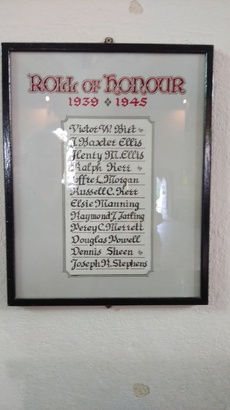 ROLL OF HONOUR
1939 ✥ 1945
Victor W. Birt ✥
J. Baxter Ellis
Henry M. Ellis
Ralph Kerr ✥
L. Morgan
Russell C. Kerr
Elsie Manning
Raymond J. Tarling
Percy C. Merrett
Douglas Powell
Dennis Sheen ✥
Joseph R. Stephens